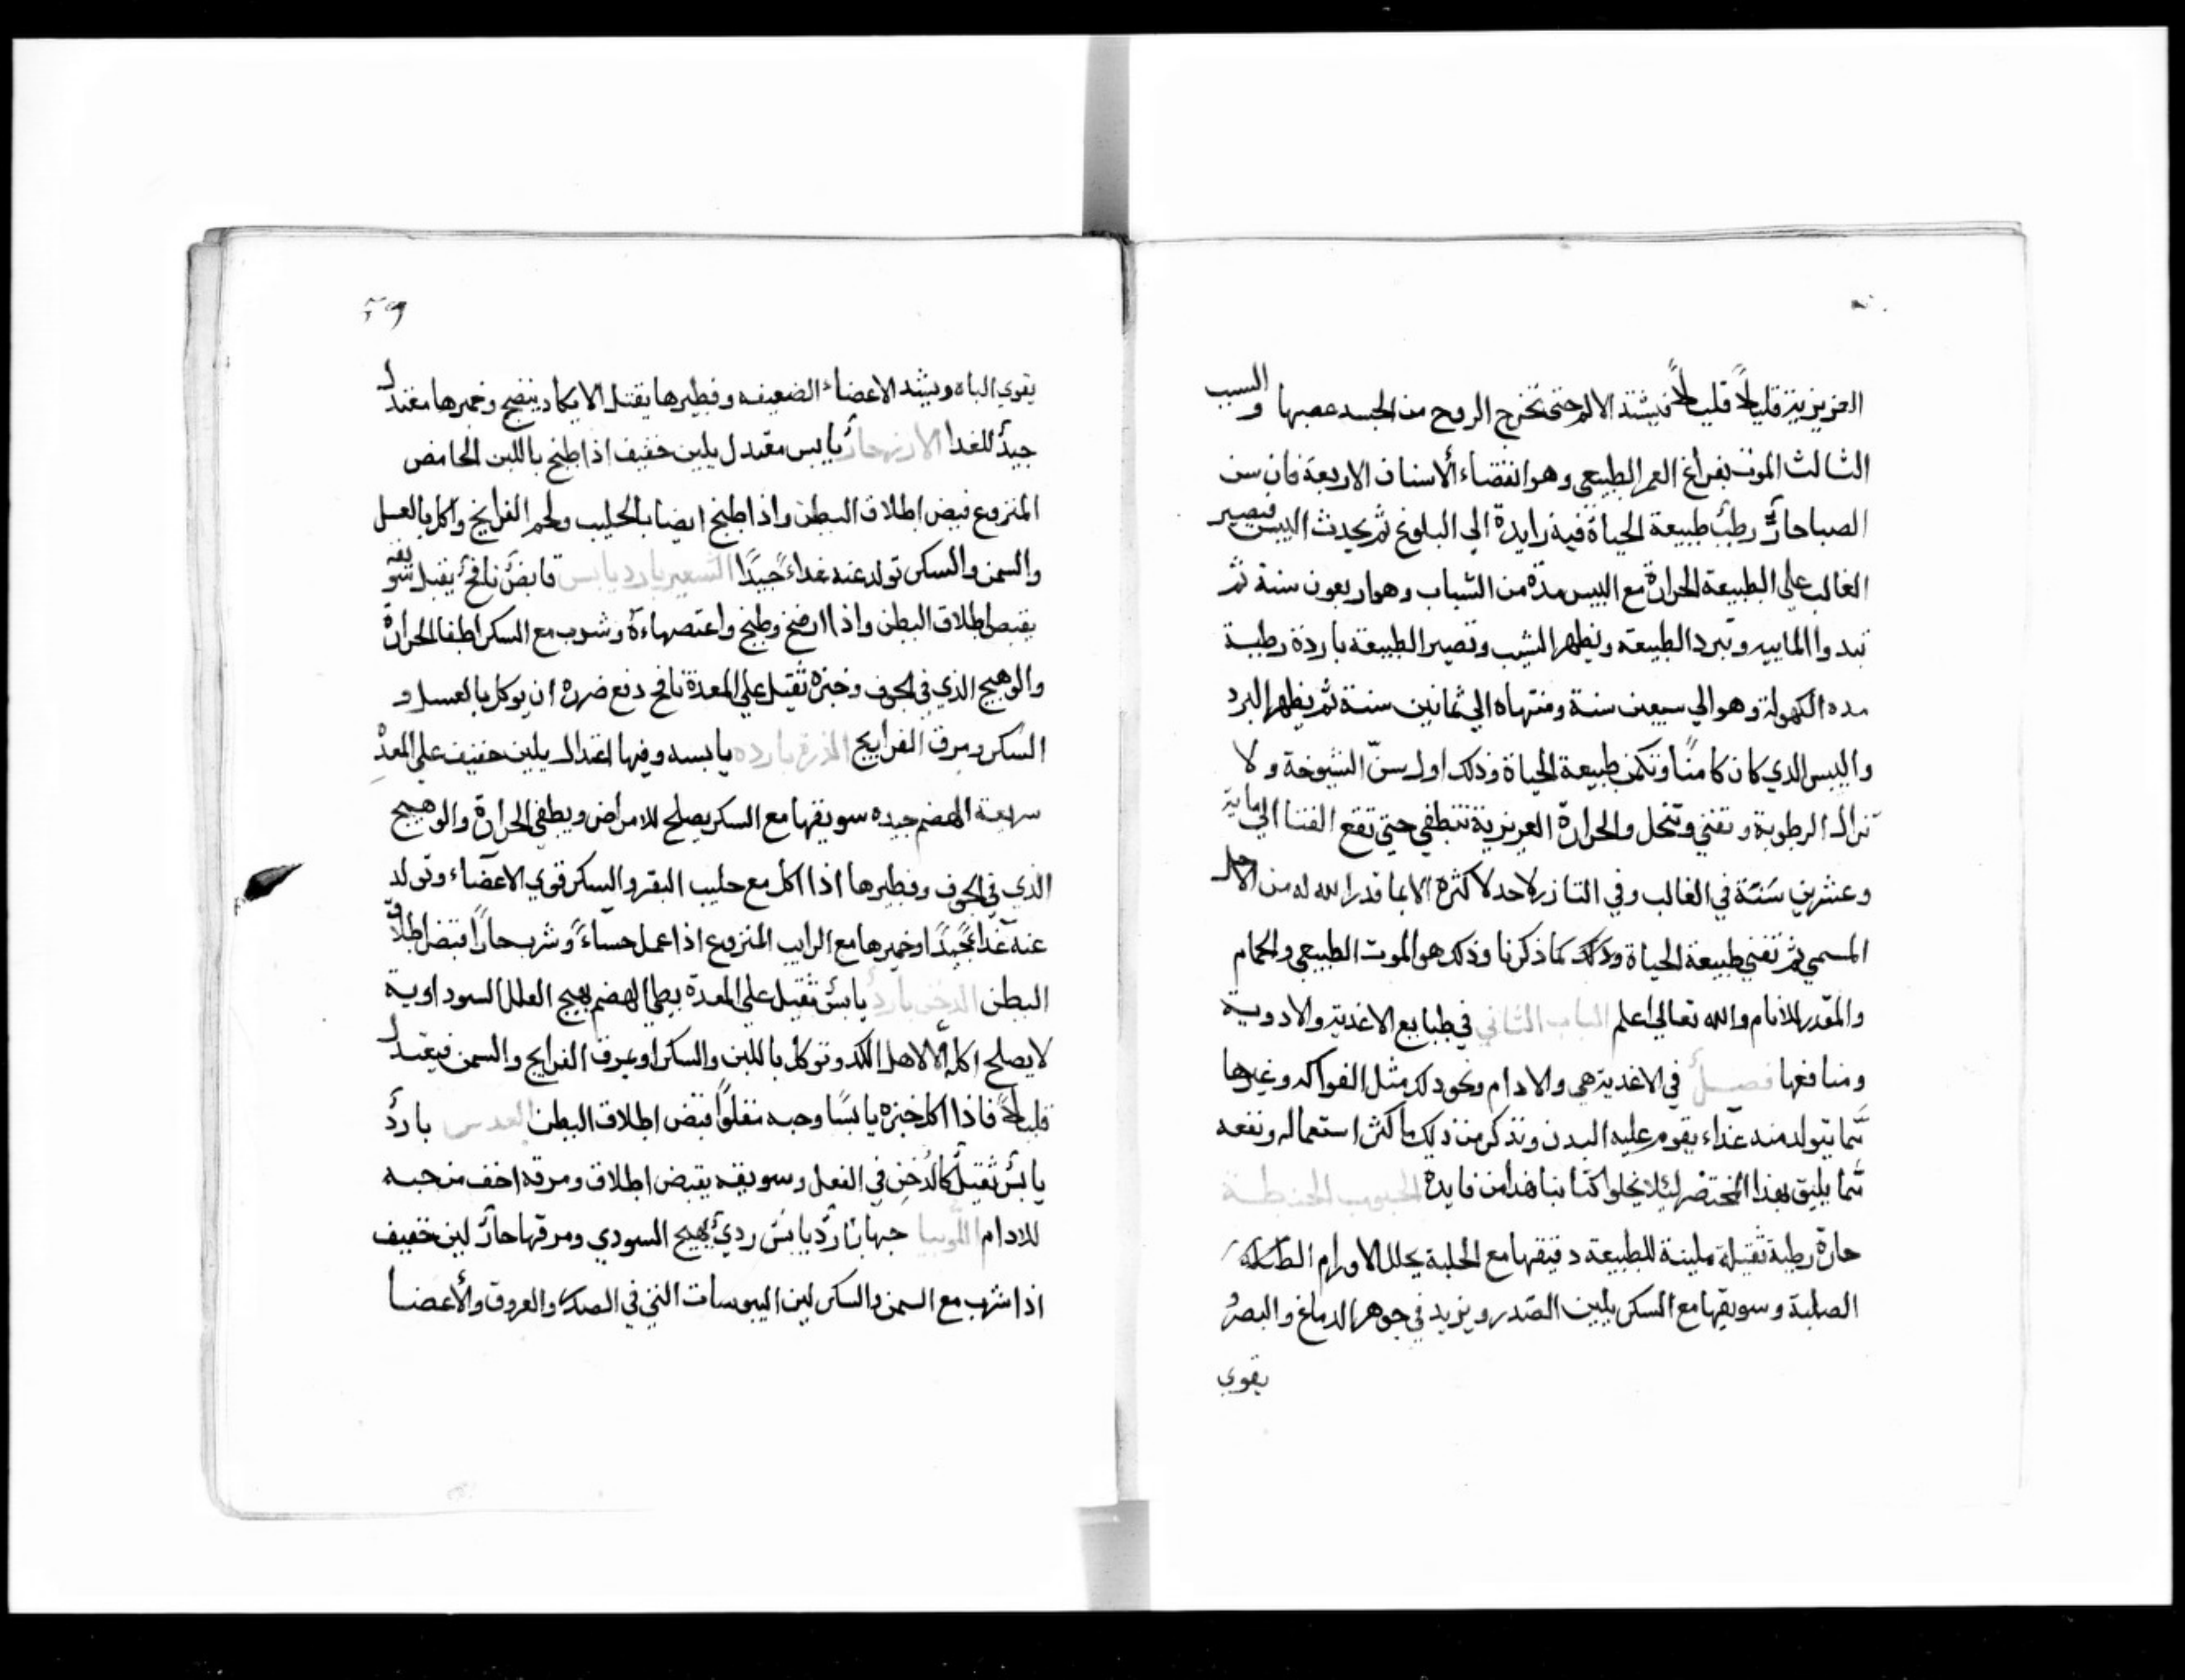 العزيزية قليلاً قليلاً فيشتد الالم حتى تخرج الروح من الجسد عصبها والسبب
الثالث الموت بفراغ العمر الطبيعي وهو انقضاء الاسنان الاربعة فان سن
الصبا حارٌّ رطبٌ طبيعة الحياة فيه زايدة الي البلوغ ثم يحدث اليبس فيصير
الغالب علي الطبيعة الحرارة مع اليبس مدة من الشباب وهو اربعون سنة ثم
تبدوا المابيه وتبرد الطبيعه ويظهر الشيب وتصير الطبيعة باردة رطبة
مده الكهولة وهو الي سبعين سنة ومنتهاه الي ثمانين سنة ثم يظهر البرد
واليبس الذي كان كامنًا وتكمن طبيعة الحياة وذلك اول سنّ الشيوخة ولا
تزال الرطوبة وتفني وتنحل والحرارة العريزية تنطفي حتي تقع الفنا الي ماية
وعشرين سَنَة في الغالب وفي النادر لاحد لاكثره الا بما قدر الله له من الاجل
المسمي ثم تفني طبيعة الحياة وذلك كما ذكرنا وذلك هو الموت الطبيعي والحمام
والمقدر للانام والله تعالي اعلم الباب الثاني في طبايع الاغدية والادوية
ومنافعها فصل في الاغدية هي والادام ونحو ذلك مثل الفواكه وغيرها
مّما يتولد منه غذاء يقوم عليه البدن ونذكر من ذلك ما كثر استعماله ونفعه
مّما يليق بهذا المختصر ليلا يخلوا كتابنا هذا من فايدة الحبوب الحنطة
حارة رطبة ثقيلة ملينة للطبيعة دقيقها مع الحلبة يحلل الاورام
الصلبة وسويقها مع السكر يلين الصّدر ويزيد في جوهر الدماغ والبصر و
يقوي
٢٩
يقوي الباه ويشد الاعضاء الضعيفه وفطيرها يقتل لا يكاد ينضج وخميرها معتدل
جيدٌ للغدا الارز حارٌ يابس معتدل يلين خفيف اذا طبخ باللبن الحامض
المنزوع قبض اطلاق البطن واذا طبخ ايضا بالحليب ولحم الفراريج واكل بالعسل
والسمن والسكر تولد عنه غداءً جيدًا الشعير بارد يابس قابضٌ نافخٌ يقبل سويقه
يقبص اطلاق البطن واذا ارضخ وطبخ واعتصر ماءه وشرب مع السكر اطفا الحرارة
والوهيج الذي في الجوف وخبزه ثقيل علي المعدة نافخ دفع ضرره ان يوكل بالعسل و
السكر ومرق الفراريج الذرة بارده يابسه وفيها اعتدال يلين خفيف علي المعدة
سريعة الهضم جيده سويقها مع السكر يصلح للامراض ويطفي الحرارة والوهيج
الذي في الجوف وفطيرها اذا اكل مع حليب البقر والسكر قوي الاعضاء وتولد
عنه غداءً جيدًا وخميرها مع الرايب المنزوع اذا عمل حساءً وشرب حارًا قبض اطلاق
البطن الدخن باردٌ يابسٌ ثقيل علي المعدة بطي الهضم يهيج العلل السوداوية
لا يصلح اكله الا لاهل الكد وتوكل باللبن والسكر او بمرق الفراريج والسمن فيعتدل
قليلاً فاذا اكل خبزه يابسًا وحبه مقلوًا قبض اطلاق البطن العدس باردٌ
يابسٌ ثقيلٌ كالدُخنِ في الفعل وسويقه يقبض اطلاق ومرقه اخف من حبه
للادام اللّوبيا حبها باردٌ يابسٌ رديٌ يهيج السودي ومرقها حارٌ لين خفيف
اذا شرب مع السمن والسكر لين اليبوسات التي في الصدر والعروق والأعضا